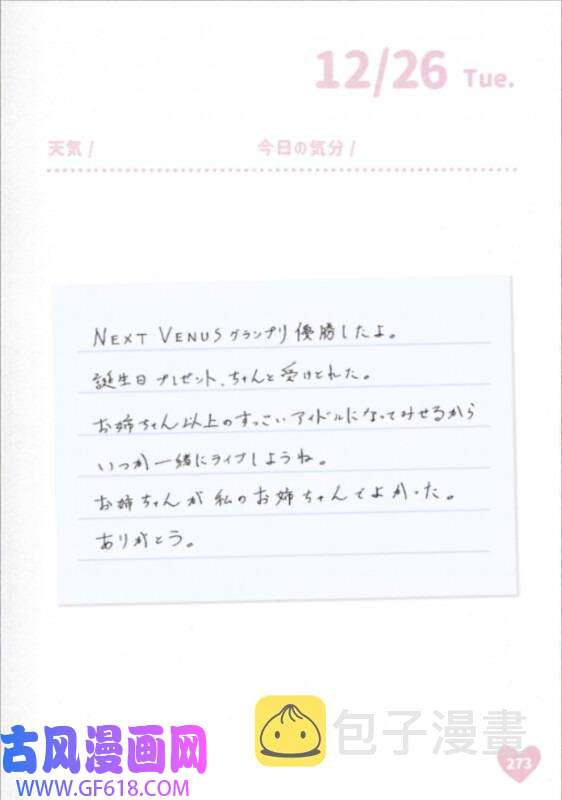 12/26 Tue.
天気 / 今日の気分 /
NEXT VENUSグランプリ優勝したよ。
誕生日プレゼント、ちゃんと受けとれた。
お姉ちゃん以上のすっごいアイドルになってみせるから
いつか一緒にライブしようね。
お姉ちゃんが私のお姉ちゃんでよかった。
ありがとう。
包子漫畫
古风漫画网
WWW.GF618.COM
273